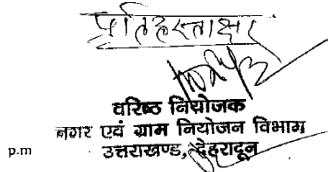 प्रतिहस्ताक्षर
वरिष्ठ नियोजक
नगर एवं ग्राम नियोजन विभाग
p.m उत्तराखण्ड, देहरादून